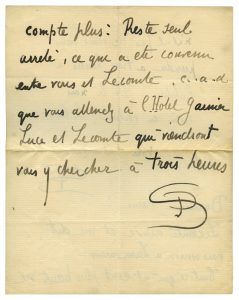 compte plus: Reste seul
arreté, ce que a eté convenu
entre vous et Lecomte, c.a.d
que vous attendez à l'Hotel Garnier
Luce et Lecomte qui viendront
vous y chercher à trois heures